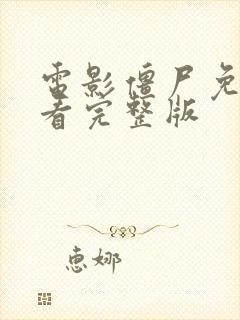 電影僵尸免
看完整版
惠娜